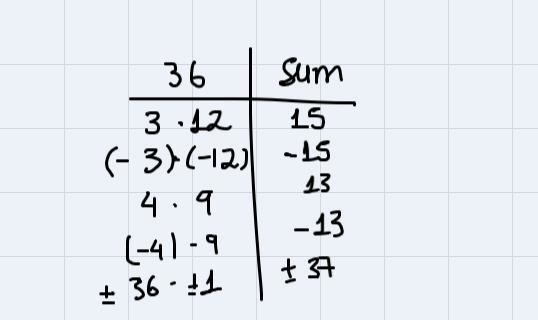 36 Sum
3 · 12 15
(- 3)·(-12) -15
4 · 9 13
(-4) - 9 -13
± 36 · ±1 ± 37